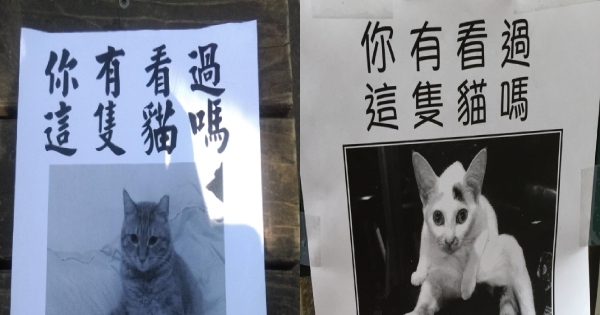 你有看過
這隻貓嗎
你有看過
這隻貓嗎